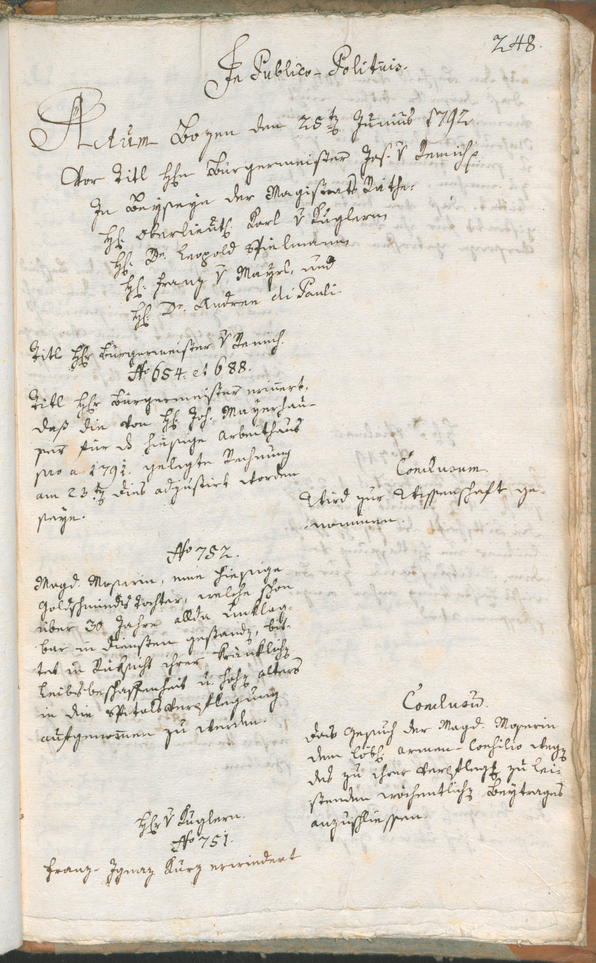 248.
In Publico-Politicis.
Actum Bozen den 25ten Junius 1792
Vor Titl Hhn Bürgermeister Jos. v Remich
In Beyseyn der Magistrats Räthe:
Hh. Oberlieut. Karl v Kuglern
Hh. Dr. Leopold Stielmann
Hh. Franz v. Mayrl, und
Hh. Dr. Andree di Pauli.
Titl Hhr Bürgermeister v Remich.
No 654. et 688.
Titl Hhr Bürgermeister erinert,
daß die von Hh Joh. Mayrhau-
ser für das hiesige Arbeitshaus
pro a. 1791. gelegte Rechnung
am 23ten dies adjustirt worden
seye.
Conclusum
Wird zur Wissenschaft ge-
nommen.
No 752.
Magd. Moserin, eine hiesige
Goldschmieds Tochter, welche schon
über 30 Jahre allda unklag-
bar in Diensten gestanden, bit-
tet in Rücksicht ihrer kränklich
Leibsbeschaffenheit u. hohen alters
in die Spitalsverpflegung
aufgenommen zu werden.
Conclusum.
das Gesuch der Magd. Moserin
dem löbl. Armen-Consilio wegen
des zu ihrer Verpflegung zu lei-
stenden wöchentlichen Beytrages
anzuschliessen.
Hhr v Kuglern.
No 751.
Franz Ignaz Kurz erwiedert